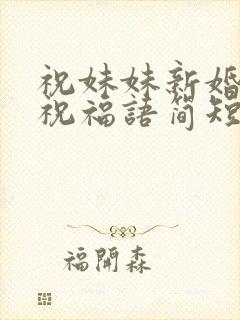 祝妹妹新婚
祝福語簡短
福開森